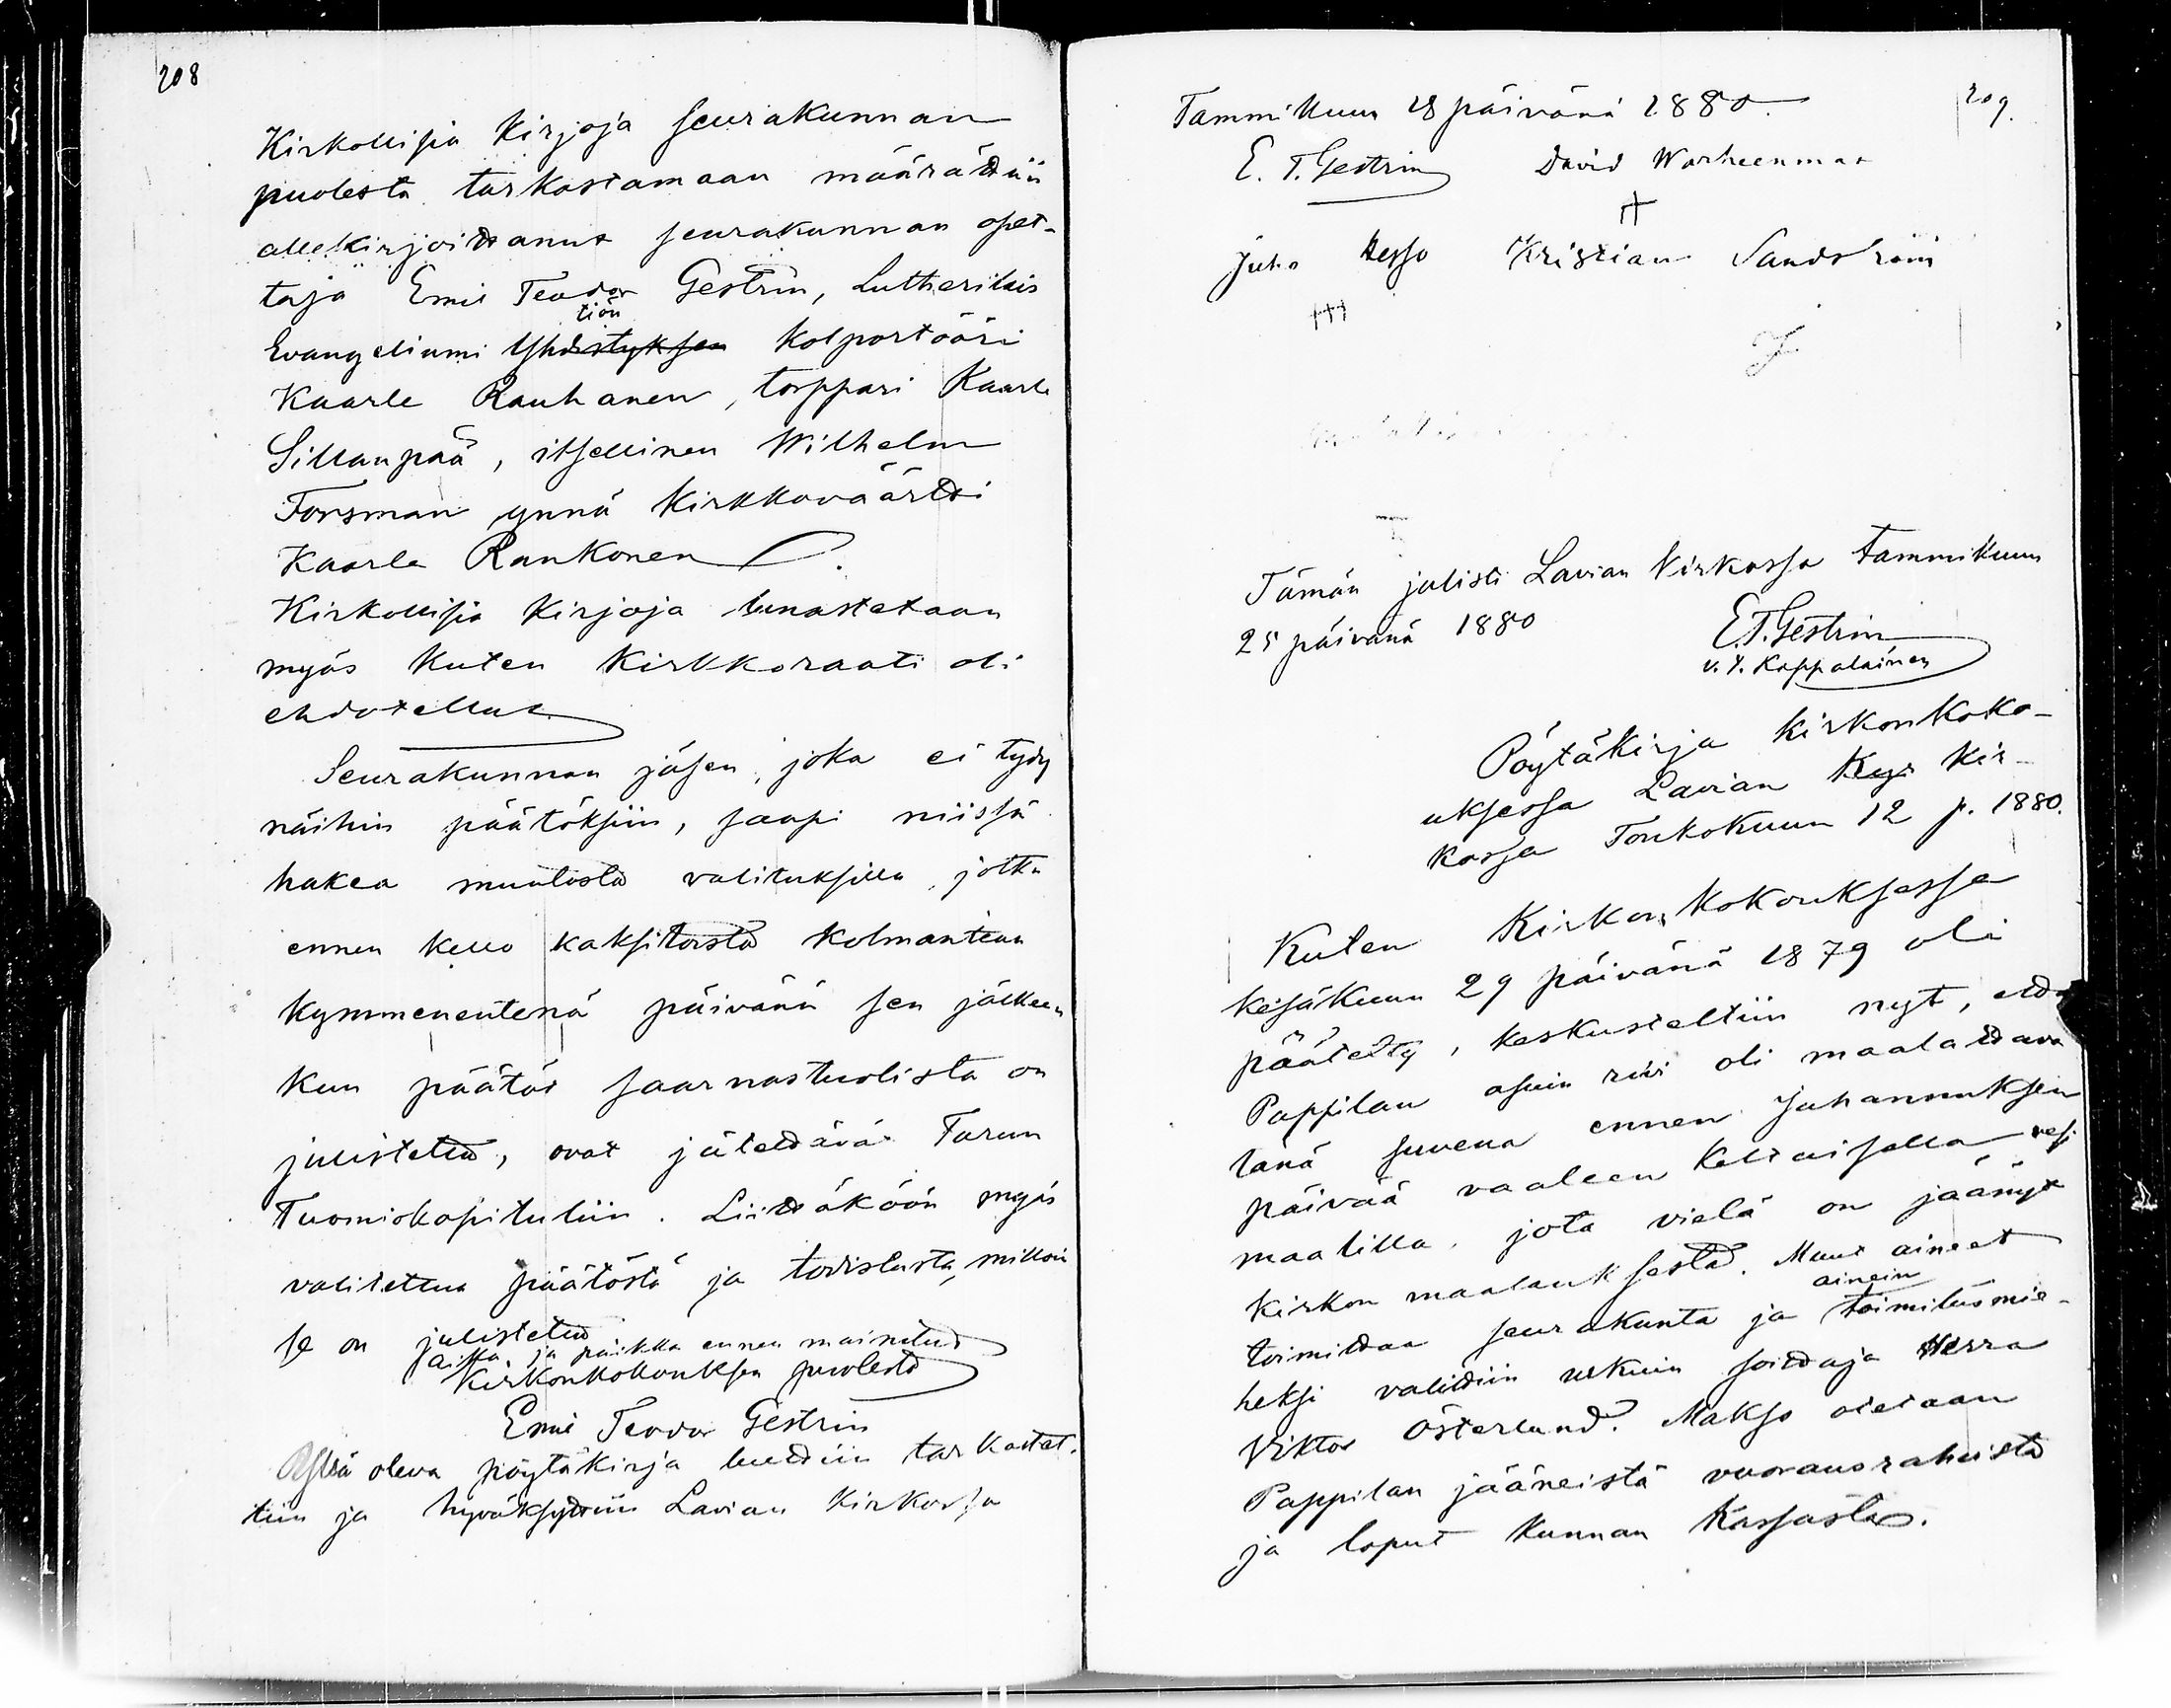 208
Kirkollisia Kirjoja seurakunnan
puolesta tarkastamaan määrättiin
allekirjoittanut seurakunnan opet-
taja Emil Teodor Gestrin, Lutherilais
tiön
Evangeliumi Yhdistyksen Kolportööri
Kaarle Rauhanen, torppari Kaarle
Sillanpää, itsellinen Wilhelm
Forsman ynnä Kirkkoväärtti
Kaarle Rankonen.
Kirkollisia Kirjoja lunastetaan
myös Kuten Kirkkoraati oli
ehdotellut
Seurakunnan jäsen, joka ei tydy
näihin päätöksiin, saapi niissä
hakea muutosta valituksilla, jotka
ennen kello kaksitoista kolmantena
kymmenentenä päivänä sen jälkeen
kun päätös saarnastuolista on
julistettu, ovat jätettävät Turun
Tuomiokapituliin. Liittäköön myös
valitettua päätöstä ja todistusta, milloin
se on julistettu
aika ja paikka ennen mainitud
Kirkonkokouksen puolesta
Emil Teodor Gestrin
Yllä oleva pöytäkirja luettiin tarkastet-
tiin ja hyväksyttiin Lavian Kirkossa
209.
Tammikuun 18 päivänä 1880.
E. T. Gestrin David Warheenmaa
Juho Hesso Kristian Sandström
Tämän julisti Lavian Kirkossa tammikuun
25 päivänä 1880
E.T. Gestrin
v. t. Kappalainen
Pöytäkirja Kirkonkoko-
uksessa Lavian Kir-
kossa Toukokuun 12 p. 1880.
Kuten Kirkon Kokouksessa
kesäkuun 29 päivänä 1879 oli
päätetty, keskusteltiin nyt, että
Pappilan asuin rivi oli maalattava
tänä suvena ennen Juhannuksen
päivää vaaleen Keltaisella vesi
maalilla, jota vielä on jäänyt
Kirkon maalauksesta. Muut aineet
ainein
toimittaa seurakunta ja toimitusmie-
heksi valittiin urkuin soittaja Herra
Viktor Österlund. Makso otetaan
Pappilan jääneistä vuorausrahoista
ja loput Kunnan Kassasta.